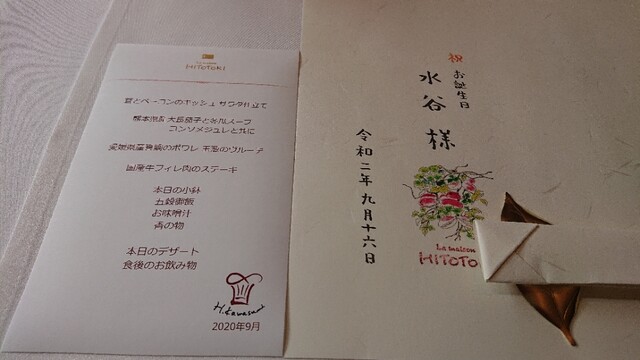 La maison
HiTOTOKi
豆とベーコンのキッシュ サラダ仕立て
熊本県産 大長茄子と冷たいスープ
コンソメジュレと共に
愛媛県産真鯛のポワレ
国産牛フィレ肉のステーキ
本日の小鉢
五穀御飯
お味噌汁
香の物
本日のデザート
食後のお飲み物
H.Kawasumi
2020年9月
祝
お誕生日
水谷 様
令和二年九月十六日
La maison
HiTOTO